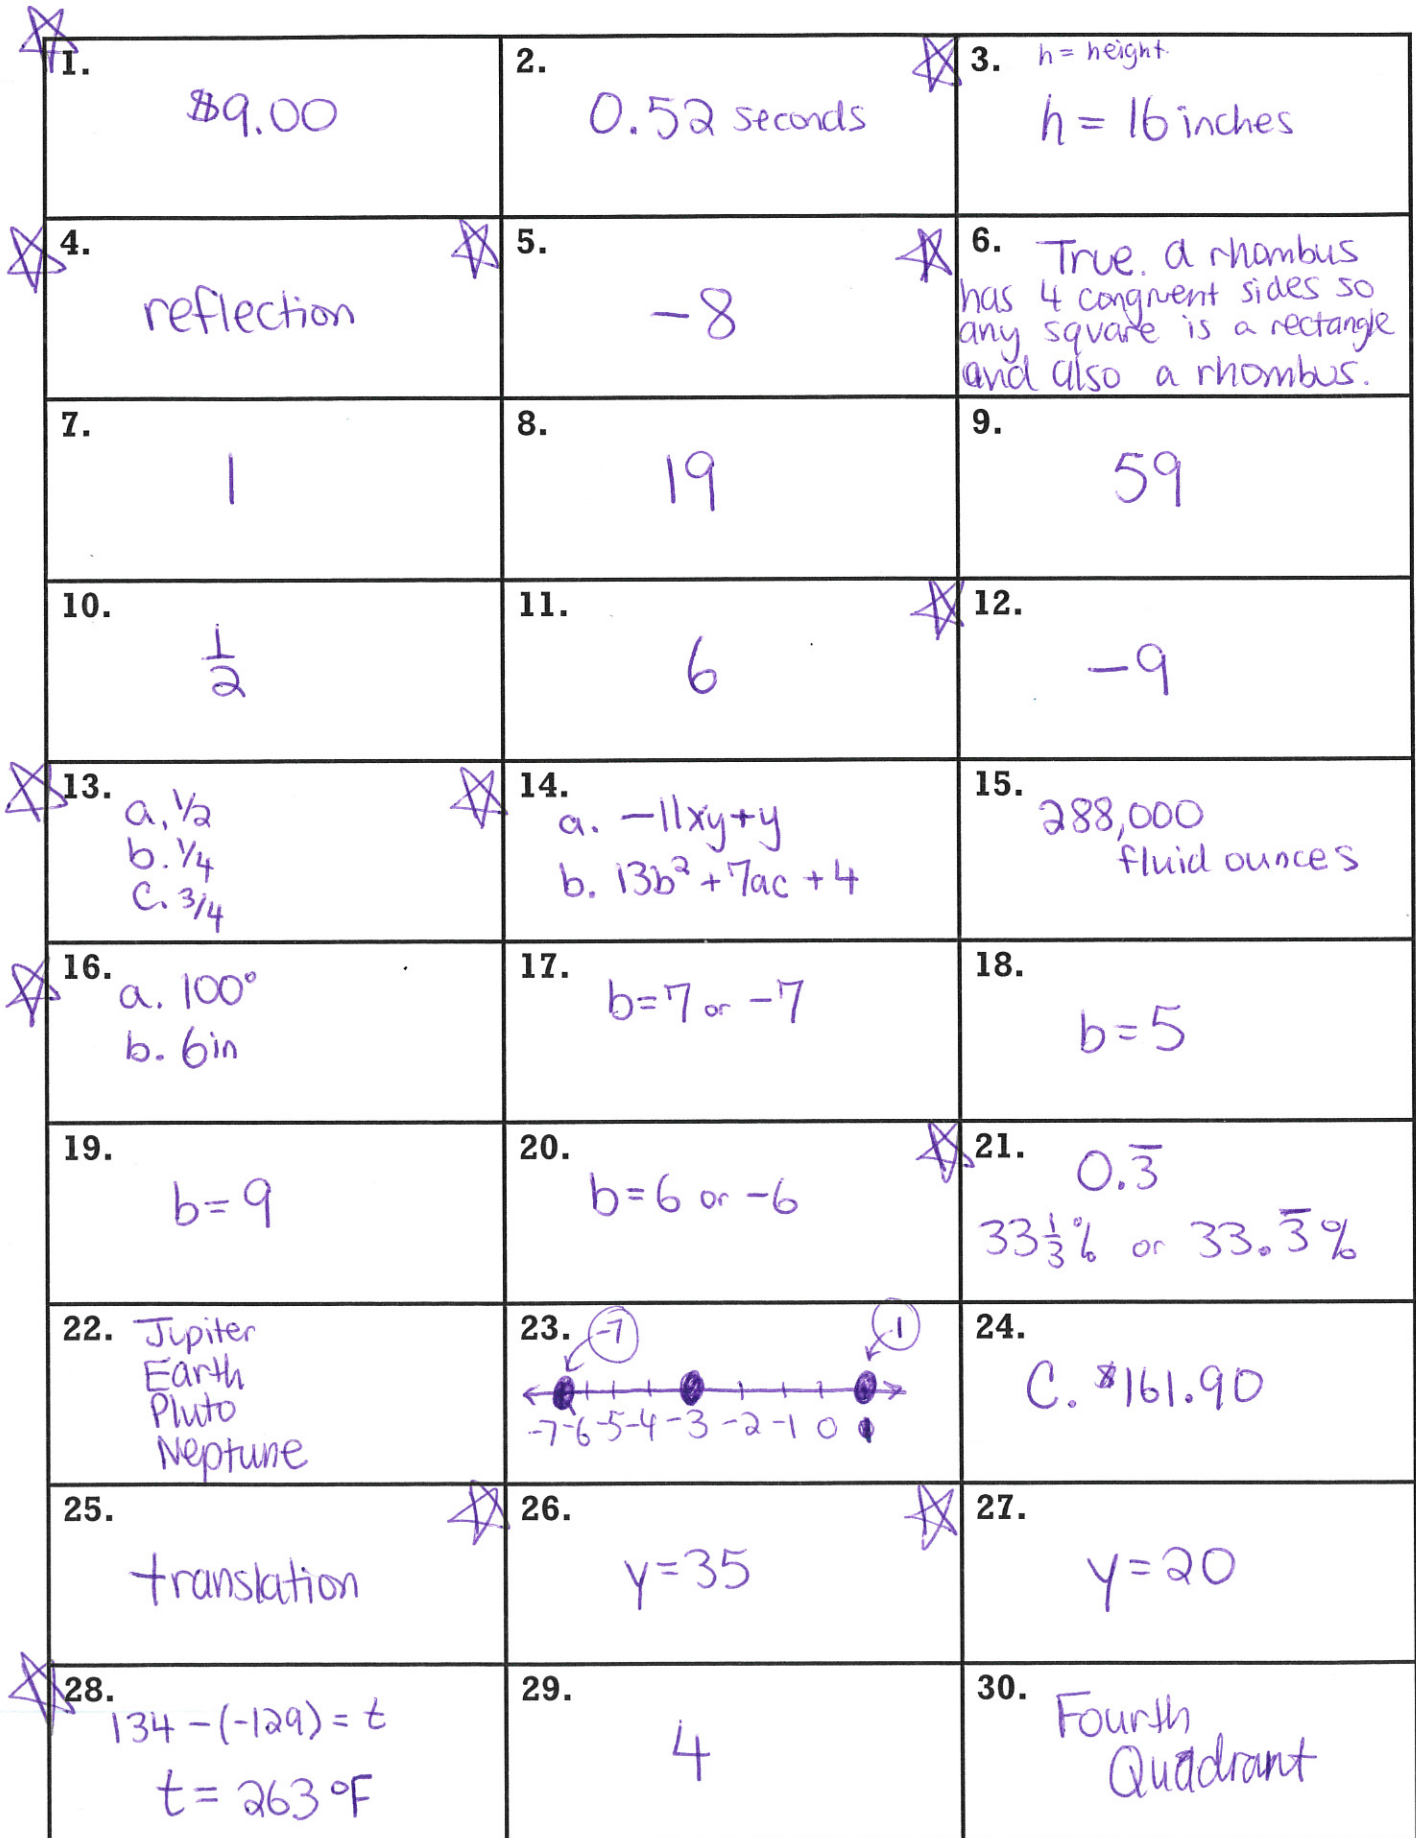 1.
$9.00
2.
0.52 seconds
3. h = height
h = 16 inches
4.
reflection
5.
-8
6. True. a rhombus
has 4 congruent sides so
any square is a rectangle
and also a rhombus.
7.
1
8.
19
9.
59
10.
1/2
11.
6
12.
-9
13.
a. 1/2
b. 1/4
c. 3/4
14.
a. -11xy+y
b. 13b² + 7ac + 4
15.
288,000
fluid ounces
16.
a. 100°
b. 6in
17.
b=7 or -7
18.
b=5
19.
b=9
20.
b=6 or -6
21.
0.3̅
33⅓% or 33.3̅%
22. Jupiter
Earth
Pluto
Neptune
23. -7 1
-7 -6 -5 -4 -3 -2 -1 0 1
24.
C. $161.90
25.
translation
26.
y=35
27.
y=20
28.
134 - (-129) = t
t = 263°F
29.
4
30. Fourth
Quadrant